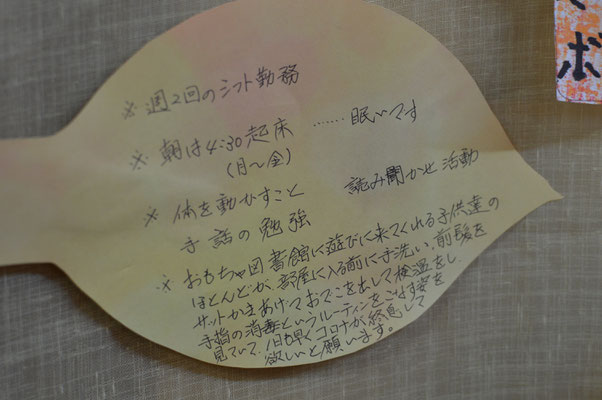 ボ
※ 週2回のシフト勤務
※ 朝は4:30起床 …… 眠いです
(月〜金)
※ 体を動かすこと 読み聞かせ活動
手話の勉強
※ おもちゃ図書館に遊びに来てくれる子供達の
ほとんどが、部屋に入る前に手洗い、前髪を
サッとかきあげておでこを出して検温をし
手指の消毒というルーティンをこなす姿を
見ていて、1日も早くコロナが終息して
欲しいと願います。